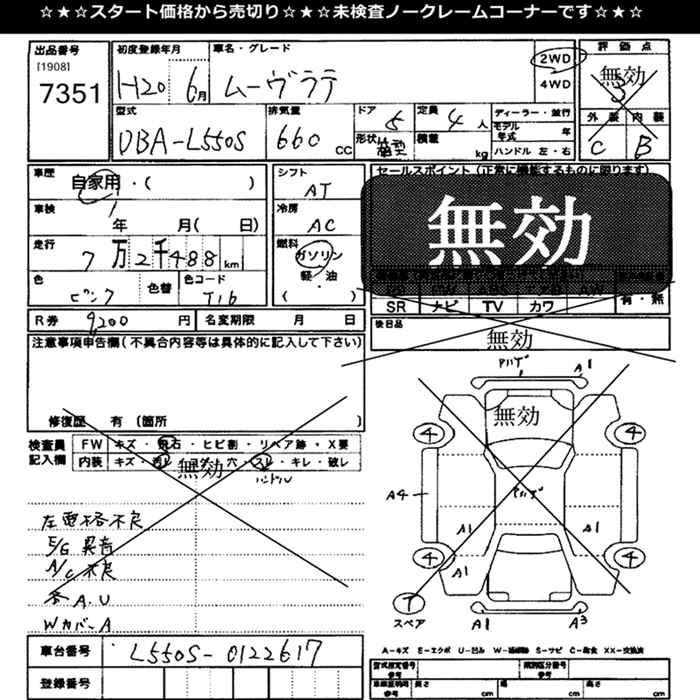 ☆★☆★スタート価格から売切り☆★☆★未検査ノークレームコーナーです☆★☆
出品番号 初度登録年月 車名・グレード 2WD 評価点
[1908] 7351 H20 6月 ムーヴラテ 4WD 無効
型式 排気量 ドア 定員 ディーラー・並行 外装 内装
DBA-L550S 660 CC 5 4人 モデル年式 年 C B
形状 箱型 積載 kg ハンドル 左・右
車歴 自家用・( ) シフト AT セールスポイント (正常に機能するものに限ります)
車検 年 月( 日) 冷房 AC 無効
走行 7万2千488km 燃料 ガソリン
軽・油
( )
色 ピンク 色替 色コード T16
SR ナビ TV カワ 有・無
R券 9,200円 名変期限 月 日 後日品
無効
注意事項申告欄(不具合内容等は具体的に記入して下さい)
修復歴 有 (箇所 )
検査員記入欄 FW キズ・飛石・ヒビ割・リペア跡・X要
内装 キズ・汚レ・コゲ・穴・スレ・キレ・破レ
無効 ハンドル
左電格不良
E/G異音
A/C不良
A.U
Wカバー A
無効
A1
4 4
A4
A1 A1
4 A1 4
7
スペア A1 A3
A-キズ E-エクボ U-凹み S-サビ C-腐食 XX-交換済
車台番号 L550S-0122617
登録番号
型式指定番号 参考 類別区分番号 参考
長さ cm 幅 cm 高さ cm